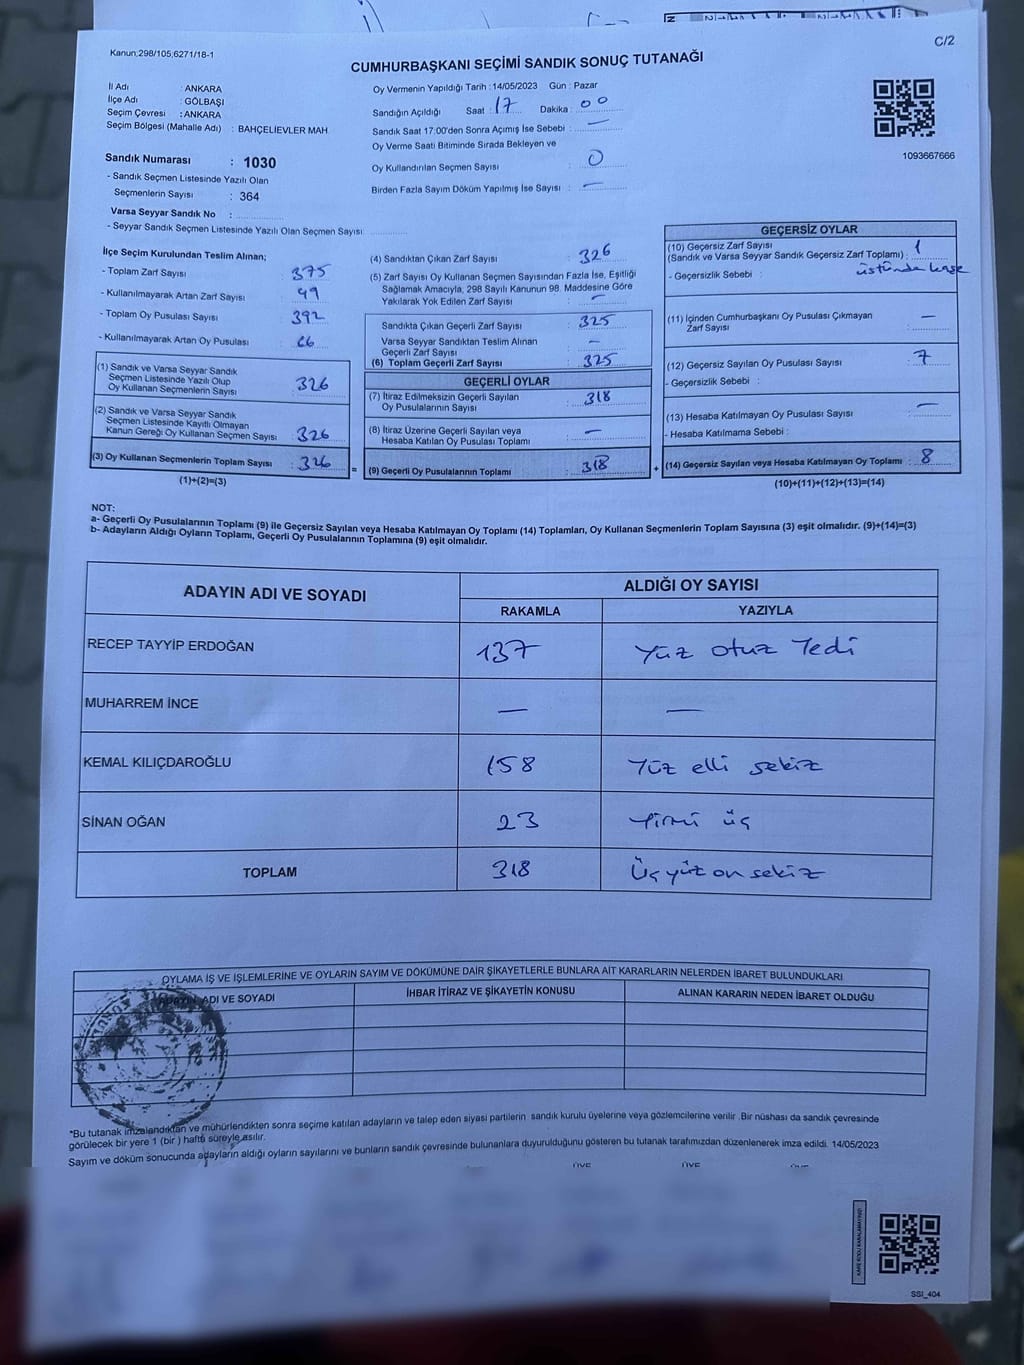 C/2
Kanun:298/105;6271/18-1
CUMHURBAŞKANI SEÇİMİ SANDIK SONUÇ TUTANAĞI
İl Adı : ANKARA
İlçe Adı : GÖLBAŞI
Seçim Çevresi : ANKARA
Seçim Bölgesi (Mahalle Adı) : BAHÇELİEVLER MAH
Sandık Numarası : 1030
- Sandık Seçmen Listesinde Yazılı Olan
Seçmenlerin Sayısı : 364
Varsa Seyyar Sandık No :
- Seyyar Sandık Seçmen Listesinde Yazılı Olan Seçmen Sayısı:
Oy Vermenin Yapıldığı Tarih :14/05/2023 Gün : Pazar
Sandığın Açıldığı Saat : 17 Dakika : 00
Sandık Saat 17:00'den Sonra Açımış İse Sebebi : —
Oy Verme Saati Bitiminde Sırada Bekleyen ve
Oy Kullandırılan Seçmen Sayısı : 0
Birden Fazla Sayım Döküm Yapılmış İse Sayısı : —
1093667666
İlçe Seçim Kurulundan Teslim Alınan;
- Toplam Zarf Sayısı : 375
- Kullanılmayarak Artan Zarf Sayısı : 49
- Toplam Oy Pusulası Sayısı : 392
- Kullanılmayarak Artan Oy Pusulası : 66
(1) Sandık ve Varsa Seyyar Sandık
Seçmen Listesinde Yazılı Olup
Oy Kullanan Seçmenlerin Sayısı : 326
(2) Sandık ve Varsa Seyyar Sandık
Seçmen Listesinde Kayıtlı Olmayan
Kanun Gereği Oy Kullanan Seçmen Sayısı : 326
(3) Oy Kullanan Seçmenlerin Toplam Sayısı : 326
(1)+(2)=(3)
(4) Sandıktan Çıkan Zarf Sayısı : 326
(5) Zarf Sayısı Oy Kullanan Seçmen Sayısından Fazla İse, Eşitliği
Sağlamak Amacıyla, 298 Sayılı Kanunun 98. Maddesine Göre
Yakılarak Yok Edilen Zarf Sayısı : —
Sandıkta Çıkan Geçerli Zarf Sayısı : 325
Varsa Seyyar Sandıktan Teslim Alınan
Geçerli Zarf Sayısı : —
(6) Toplam Geçerli Zarf Sayısı : 325
=
GEÇERLİ OYLAR
(7) İtiraz Edilmeksizin Geçerli Sayılan
Oy Pusulalarının Sayısı : 318
(8) İtiraz Üzerine Geçerli Sayılan veya
Hesaba Katılan Oy Pusulası Toplamı : —
(9) Geçerli Oy Pusulalarının Toplamı : 318
+
GEÇERSİZ OYLAR
(10) Geçersiz Zarf Sayısı
(Sandık ve Varsa Seyyar Sandık Geçersiz Zarf Toplamı) : 1
- Geçersizlik Sebebi : üstünde
(11) İçinden Cumhurbaşkanı Oy Pusulası Çıkmayan
Zarf Sayısı : —
(12) Geçersiz Sayılan Oy Pusulası Sayısı : 7
- Geçersizlik Sebebi :
(13) Hesaba Katılmayan Oy Pusulası Sayısı : —
- Hesaba Katılmama Sebebi :
(14) Geçersiz Sayılan veya Hesaba Katılmayan Oy Toplamı : 8
(10)+(11)+(12)+(13)=(14)
NOT:
a- Geçerli Oy Pusulalarının Toplamı (9) ile Geçersiz Sayılan veya Hesaba Katılmayan Oy Toplamı (14) Toplamları, Oy Kullanan Seçmenlerin Toplam Sayısına (3) eşit olmalıdır. (9)+(14)=(3)
b- Adayların Aldığı Oyların Toplamı, Geçerli Oy Pusulalarının Toplamına (9) eşit olmalıdır.
ADAYIN ADI VE SOYADI ALDIĞI OY SAYISI
RAKAMLA YAZIYLA
RECEP TAYYİP ERDOĞAN 137 Yüz otuz Yedi
MUHARREM İNCE — —
KEMAL KILIÇDAROĞLU 158 Yüz elli sekiz
SİNAN OĞAN 23 Yirmi üç
TOPLAM 318 Üçyüz on sekiz
OYLAMA İŞ VE İŞLEMLERİNE VE OYLARIN SAYIM VE DÖKÜMÜNE DAİR ŞİKAYETLERLE BUNLARA AİT KARARLARIN NELERDEN İBARET BULUNDUKLARI
ADAYIN ADI VE SOYADI İHBAR İTİRAZ VE ŞİKAYETİN KONUSU ALINAN KARARIN NEDEN İBARET OLDUĞU
*Bu tutanak imzalandıktan ve mühürlendikten sonra seçime katılan adayların ve talep eden siyasi partilerin sandık kurulu üyelerine veya gözlemcilerine verilir .Bir nüshası da sandık çevresinde
görülecek bir yere 1 (bir ) hafta süreyle asılır.
Sayım ve döküm sonucunda adayların aldığı oyların sayılarını ve bunların sandık çevresinde bulunanlara duyurulduğunu gösteren bu tutanak tarafımızdan düzenlenerek imza edildi. 14/05/2023
ÜYE ÜYE ÜYE
KARE KODU KARALAMAYINIZ!
SSI_404